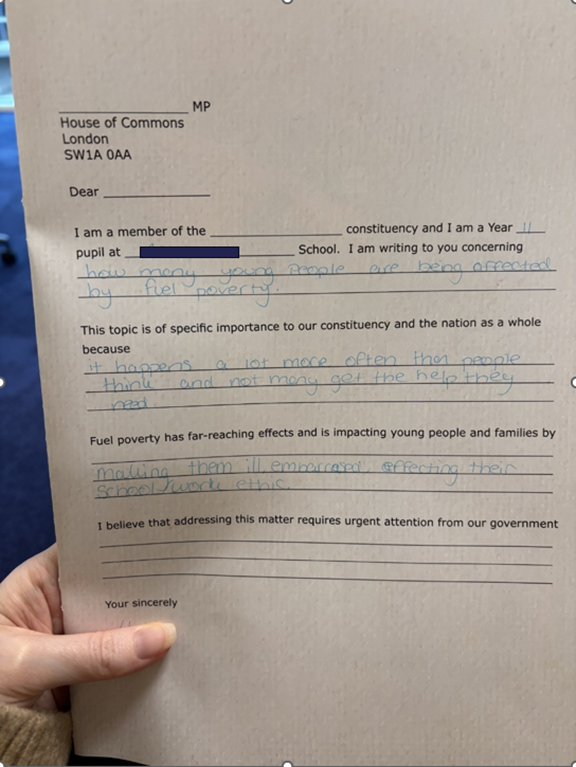 MP
House of Commons
London
SW1A 0AA
Dear
I am a member of the constituency and I am a Year 11
pupil at School. I am writing to you concerning
how many young people are being affected
by fuel poverty.
This topic is of specific importance to our constituency and the nation as a whole
because
it happens a lot more often than people
think and not many get the help they
need.
Fuel poverty has far-reaching effects and is impacting young people and families by
making them ill, embarrased, effecting their
school/work ethic.
I believe that addressing this matter requires urgent attention from our government
Your sincerely